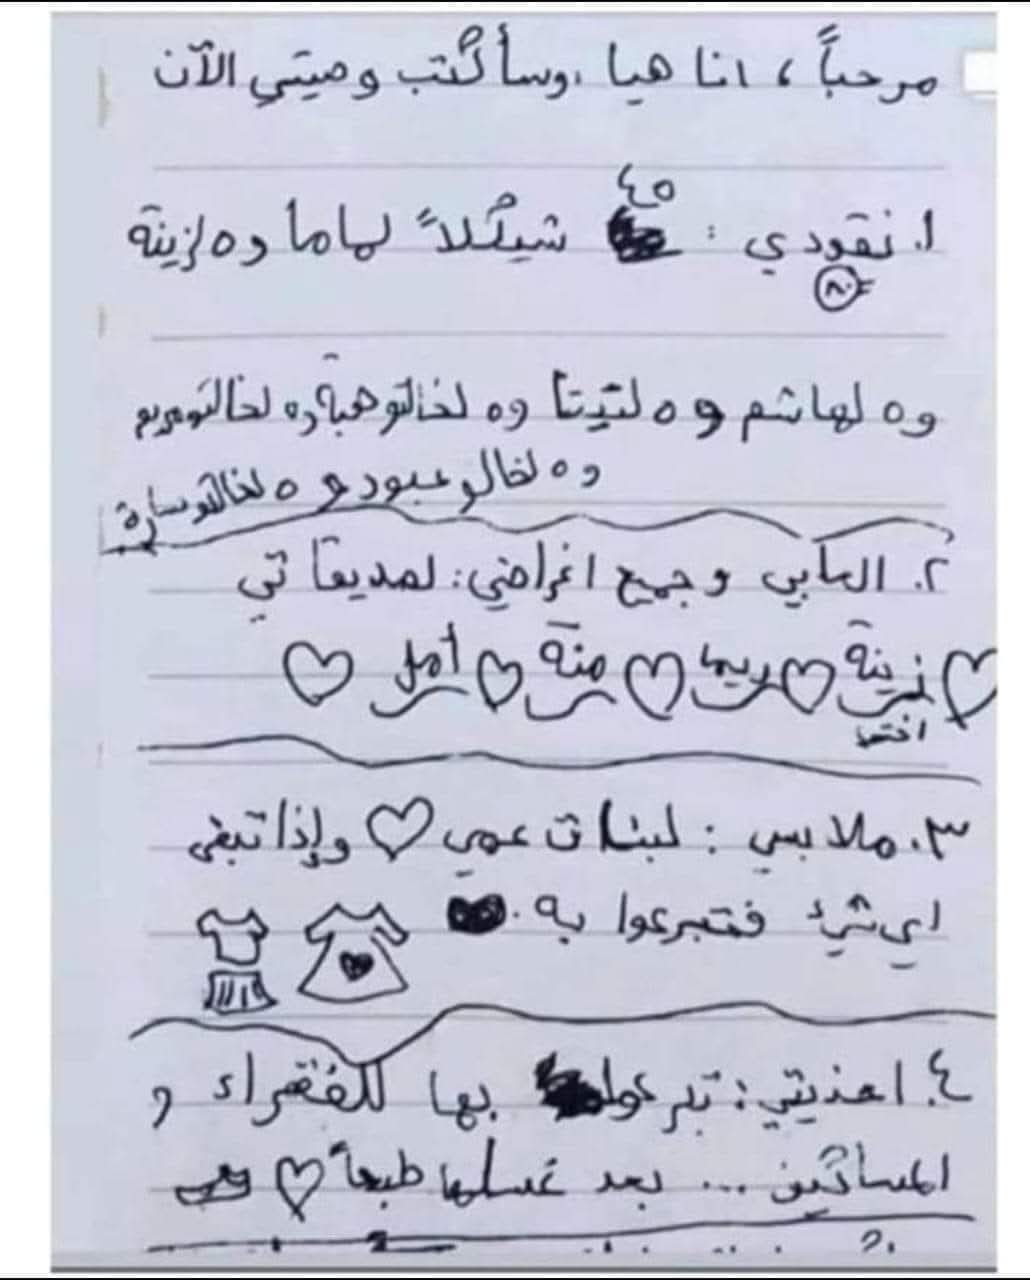 مرحباً، انا هيا ،وسأكتب وصيتي الآن
٤٥
١. نقودي : شيكلاً لماما و٥ لزينة
٨٠
و٥ لهاشم و٥ لتيتا و٥ لخالتو هبة و٥ لخالتو مريم
و٥ لخالو عبود و٥ لخالتو سارة
٢. العابي وجميع اغراضي: لصديقاتي
زينة ريما منة أمل
اختي
٣. ملابسي : لبنات عمي وإذا تبقى
اي شيء فتبرعوا به.
٤. احذيتي: تبرعوا بها للفقراء و
المساكين ... بعد غسلها طبعاً